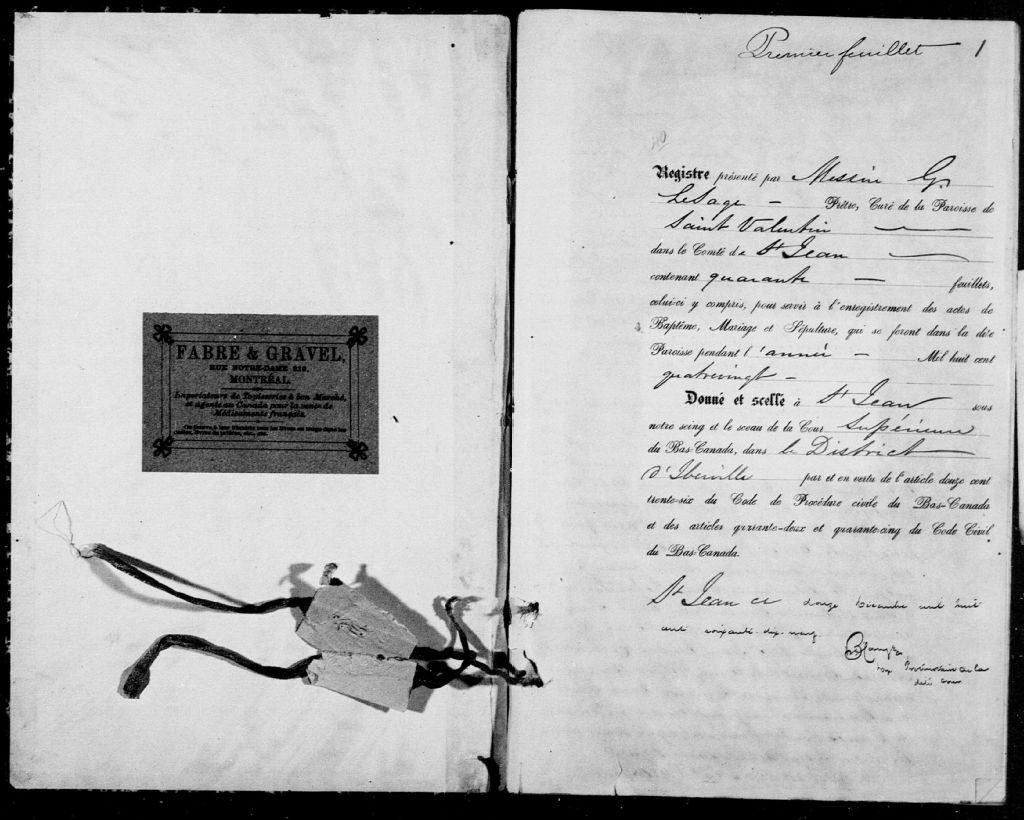 FABRE & GRAVEL,
RUE NOTRE-DAME 219.
MONTRÉAL.
Importateurs de Tapisseries à bon Marché,
et agents au Canada pour la vente de
Médicaments français.
Premier feuillet 1
Registre présenté par Messire G.
LeSage — Prêtre, Curé de la Paroisse de
Saint Valentin —
dans le Comté de St Jean —
contenant quarante — feuillets,
celui-ci y compris, pour servir à l'enregistrement des actes de
Baptême, Mariage et Sépulture, qui se feront dans la dite
Paroisse pendant l'année — Mil huit cent
quatrevingt —
Donné et scellé à St Jean sous
notre seing et le sceau de la Cour Supérieure
du Bas-Canada, dans le District
D'Iberville par et en vertu de l'article douze cent
trente-six du Code de Procédure civile du Bas-Canada
et des articles quarante-deux et quarante-cinq du Code Civil
du Bas-Canada.
St Jean ce douze Décembre mil huit
cent soixante-dix-neuf
Protonotaire de la
dite Cour